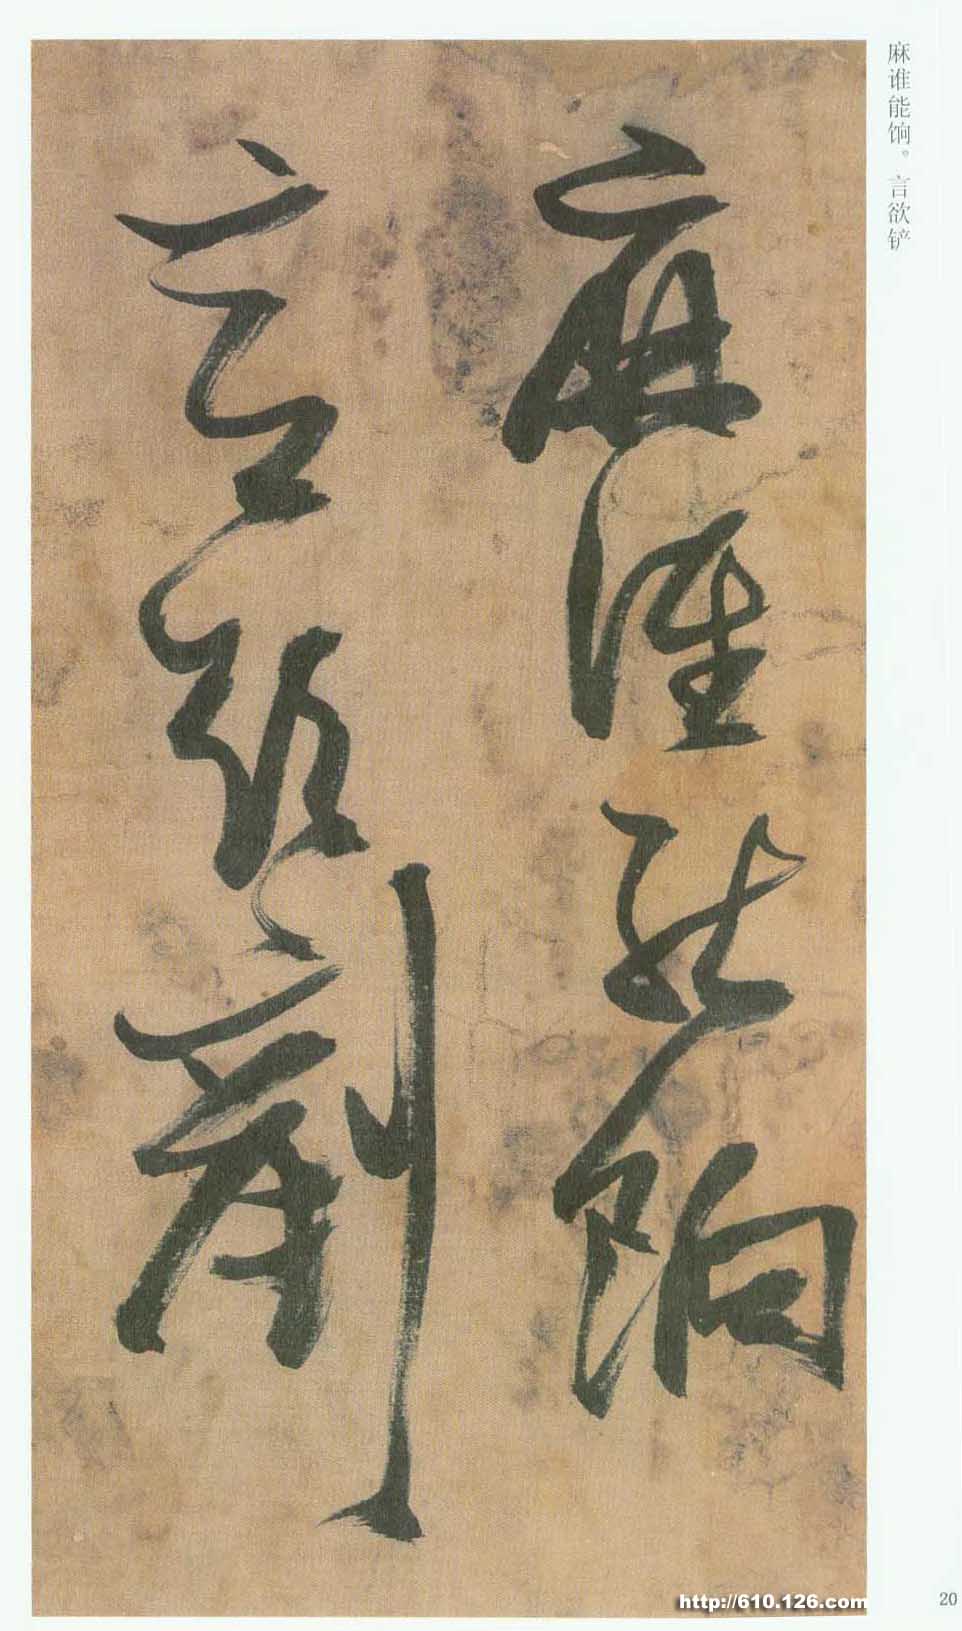 麻谁能饷。言欲铲
麻誰能餉
言欲剷
http://610.126.com
20